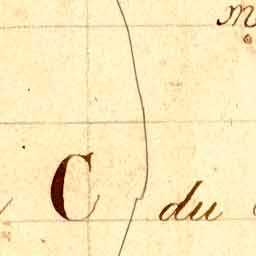 C du